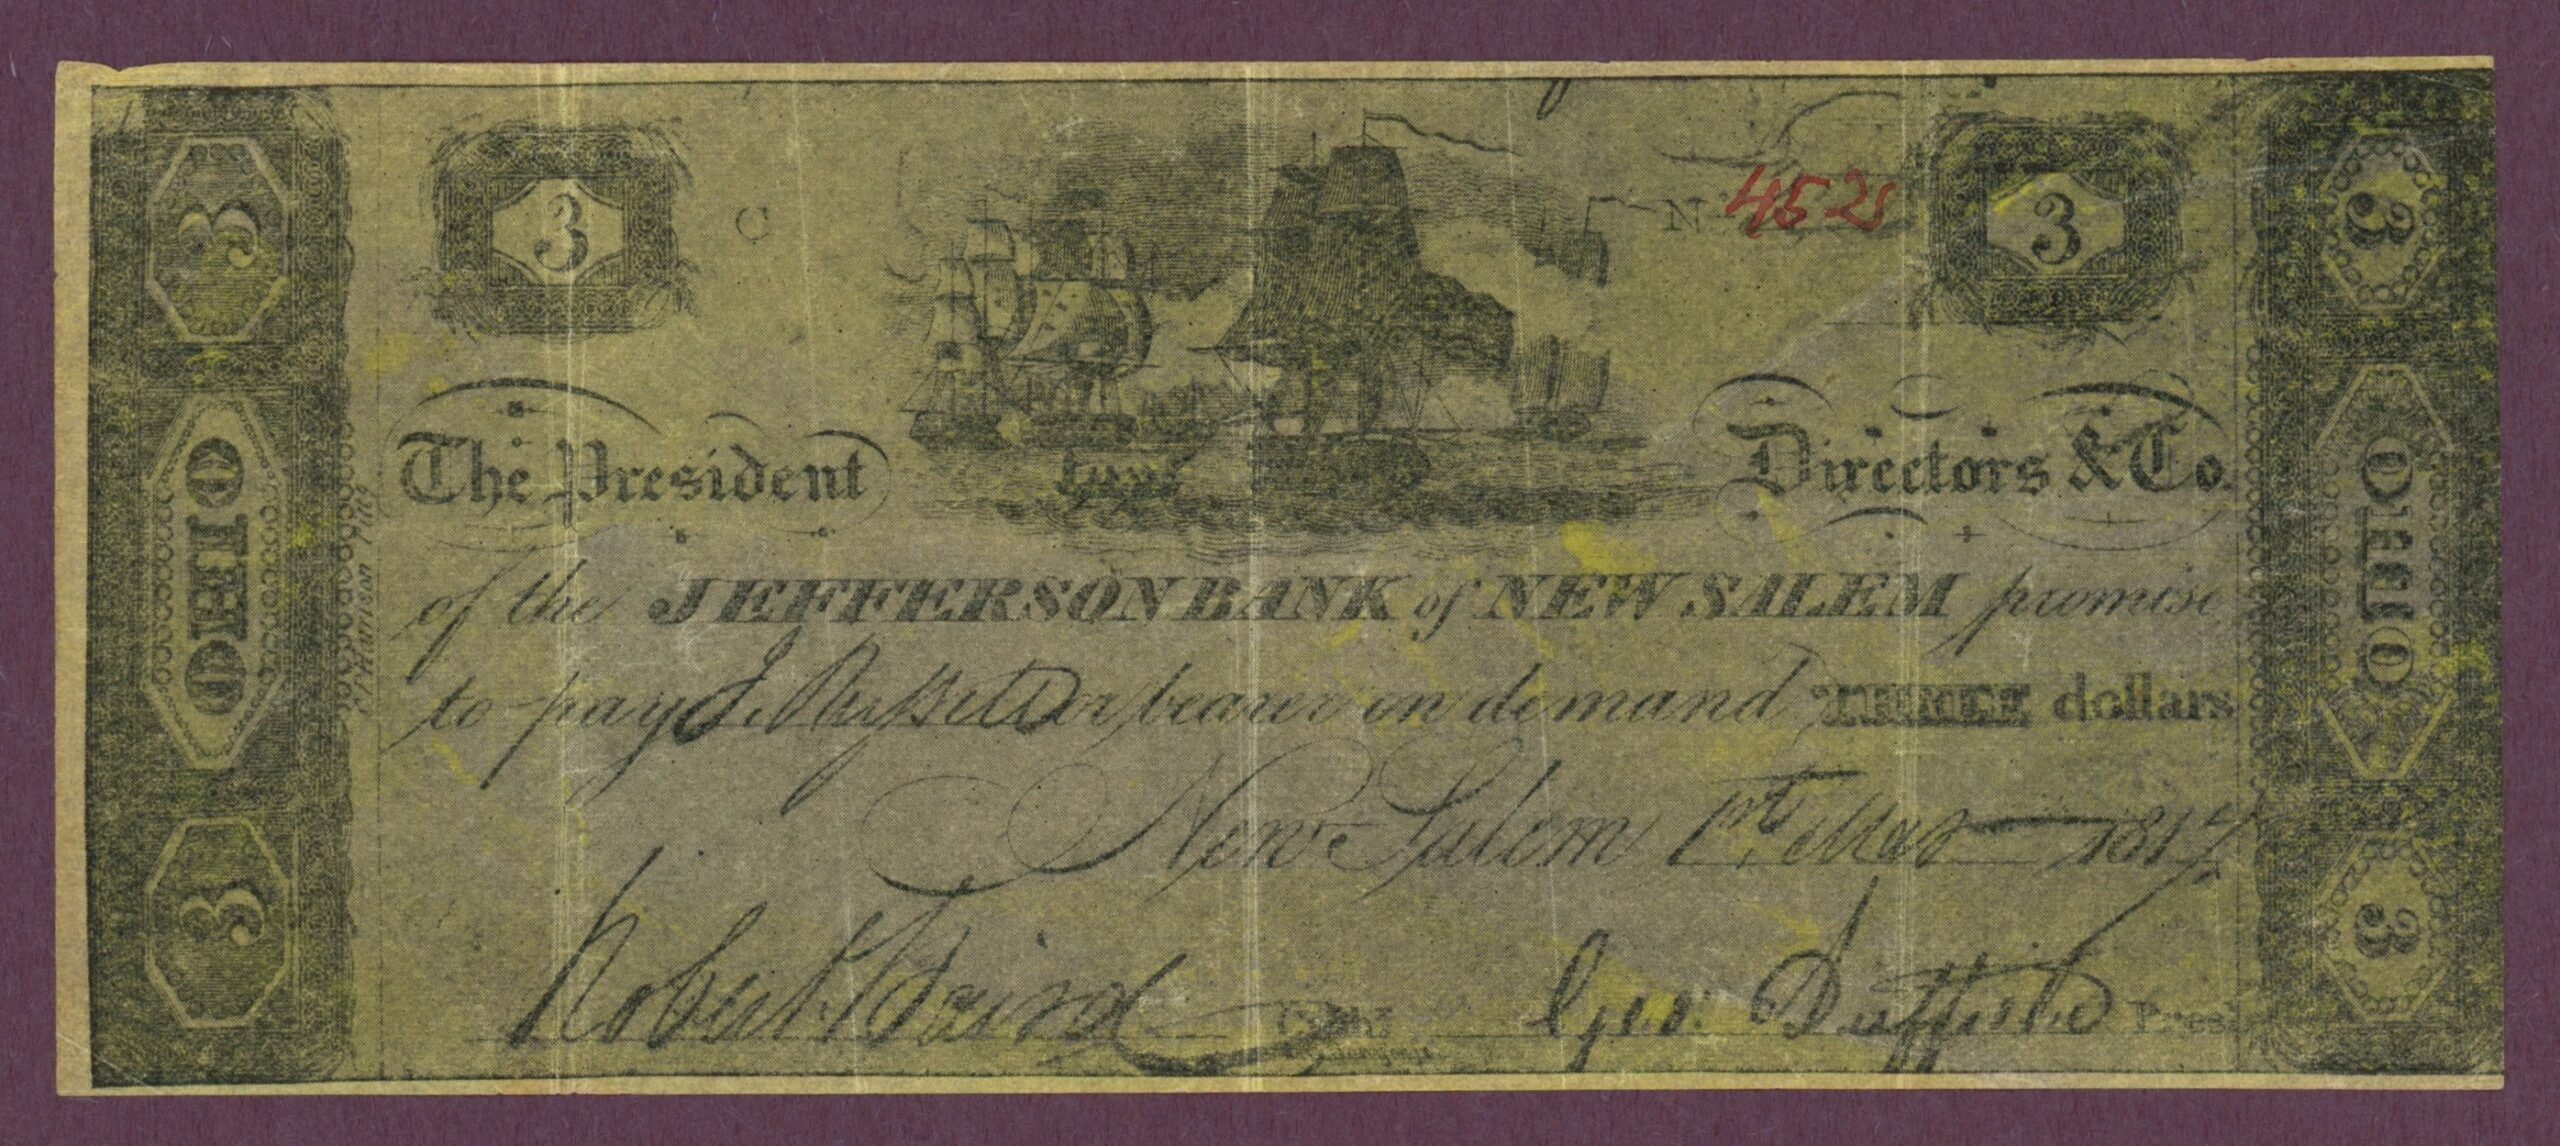 3
3
C
No 4521
3
3
OHIO
The President
Directors & Co.
OHIO
of the JEFFERSON BANK of NEW SALEM promise
to pay or bearer on demand THREE dollars
New Salem 1st 1817
3
Robert Baird Cashr
Geo: Duffield Prest
3